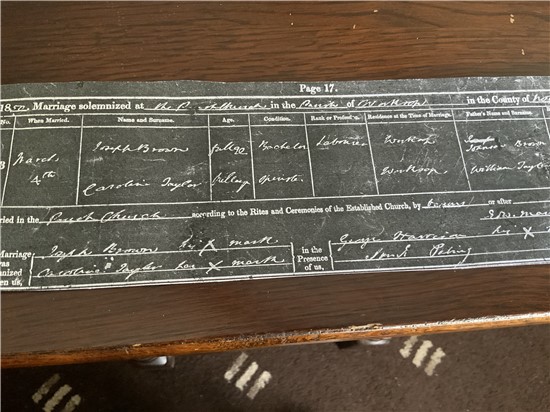 Page 17.
Marriage solemnized at the Parish Church in the Parish of Worksop in the County of
No. When Married. Name and Surname. Age. Condition. Rank or Profession. Residence at the Time of Marriage. Father's Name and Surname.
March Joseph Brown full age Bachelor Labourer Worksop Brown
4th Caroline Taylor full age Spinster Worksop William Taylor
ried in the Parish Church according to the Rites and Ceremonies of the Established Church, by or after
Marriage was Joseph Brown his X mark in the Presence of us, George Harrison his X
Caroline Taylor her X mark